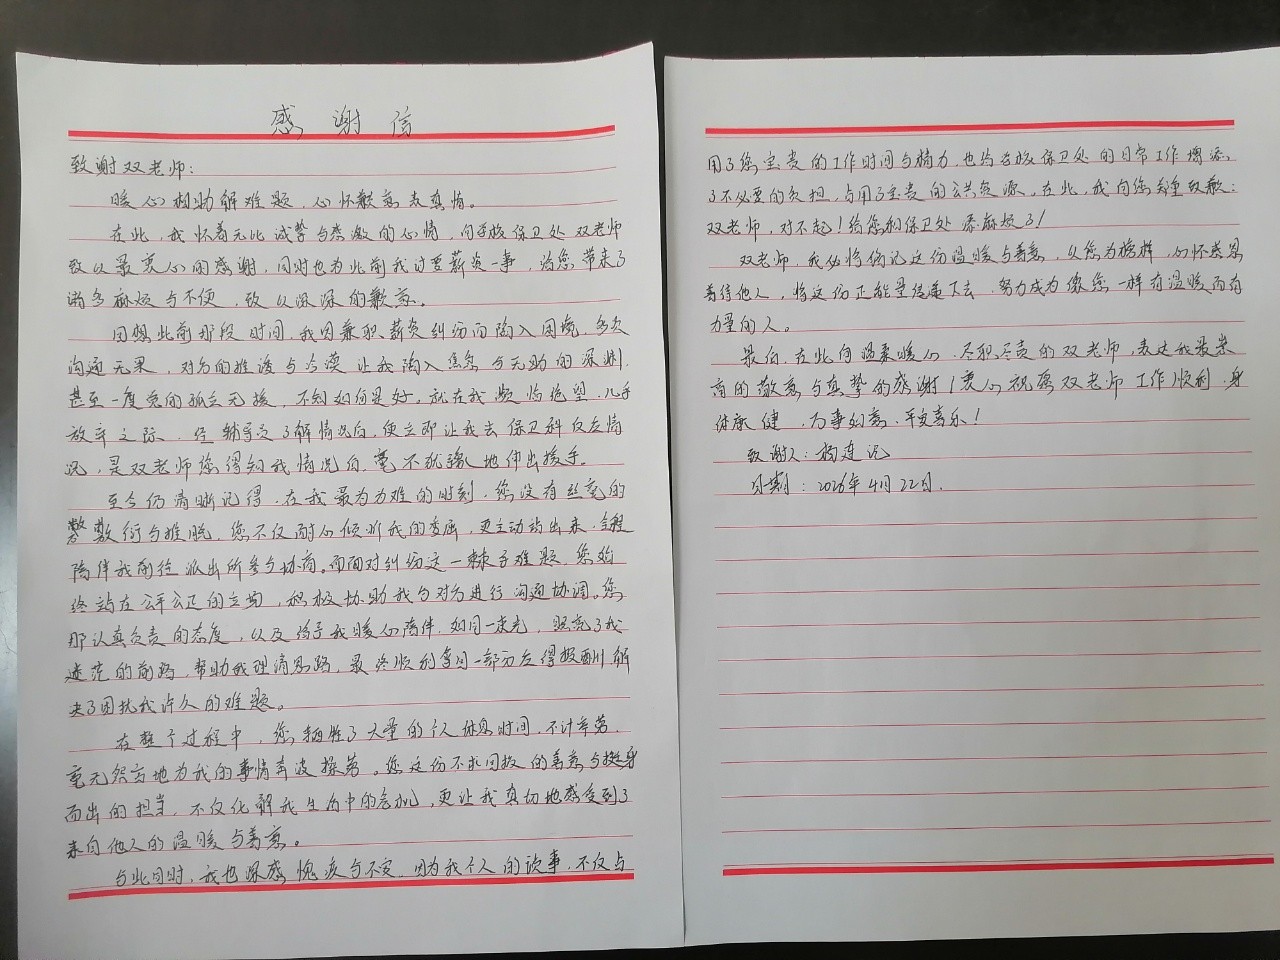 感谢信
致谢双老师：
暖心相助解难题，心怀歉意表真情。
在此，我怀着无比诚挚与感激的心情，向学校保卫处双老师
致以最衷心的感谢，同时也为此前我讨要薪资一事，给您带来了
诸多麻烦与不便，致以深深的歉意。
回想此前那段时间，我因兼职薪资纠纷而陷入困境，多次
沟通无果，对方的推诿与冷漠让我陷入焦急与无助的深渊，
甚至一度感的孤立无援，不知如何是好。就在我濒临绝望、几乎
放弃之际，经辅导员了解情况后，便立即让我去保卫科反应情
况，是双老师您得知我情况后，毫不犹豫地伸出援手。
至今仍清晰记得，在我最为为难的时刻，您没有丝毫的
敷衍与推脱，您不仅耐心倾听我的委屈，更主动站出来，全程
陪伴我前往派出所参与协商。而面对纠纷这一棘手难题，您始
终站在公平公正的立场，积极协助我与对方进行沟通协调。您
那认真负责的态度，以及给予我暖心陪伴，如同一束光，照亮了我
迷茫的前路，帮助我理清思路，最终顺利拿回一部分应得报酬，解
决了困扰我许久的难题。
在整个过程中，您牺牲了大量的个人休息时间，不计辛劳，
毫无怨言地为我的事情奔波操劳。您这份不求回报的善意与挺身
而出的担当，不仅化解我生活中的危机，更让我真切地感受到了
来自他人的温暖与善意。
与此同时，我也深感愧疚与不安，因为我个人的读事，不仅占
用了您宝贵的工作时间与精力，也给学校保卫处的日常工作增添
了不必要的负担，占用了宝贵的公共资源。在此，我向您郑重致歉：
双老师，对不起！给您和保卫处添麻烦了！
双老师，我必将铭记这份温暖与善意，以您为榜样，心怀感恩
善待他人，将这份正能量传递下去，努力成为像您一样有温暖而有
力量的人。
最后，在此向温柔暖心、尽职尽责的双老师，表达我最崇
高的敬意与真挚的感谢！衷心祝愿双老师工作顺利，身
体康健，万事如意，平安喜乐！
致谢人：杨建
日期：2026年4月22日.